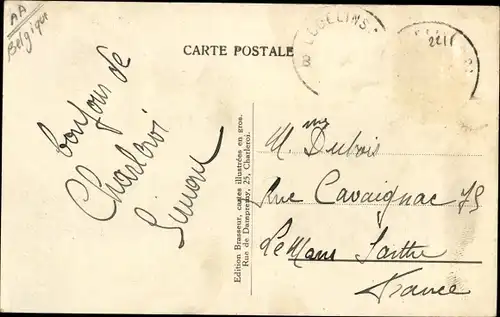 AA
Belgique
CARTE POSTALE
LODELINS
22 18
bonjour de
Charleroi
Simone
Edition Brasseur, cartes illustrées en gros.
Rue de Dampremy, 25, Charleroi.
M. Dubois
Rue Cavaignac 75
Le Mans Sarthe
France